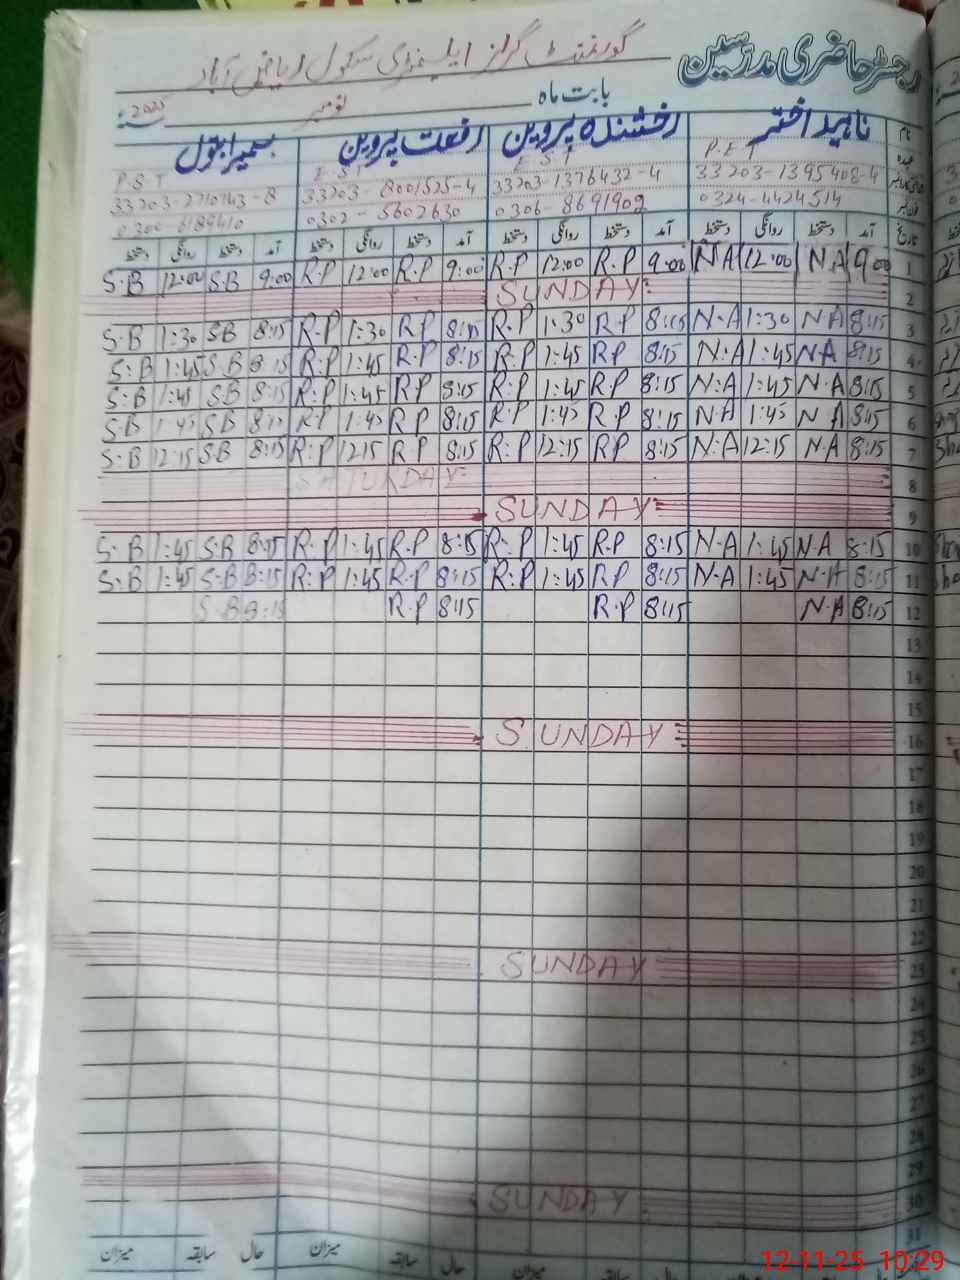 رجسٹر حاضری مدرسین گورنمنٹ گرلز ایلیمنٹری سکول ریاض آباد
بابت ماہ نومبر 2025ء
نام ناہید اختر رخشندہ پروین رفعت پروین سمیرا بتول
عہدہ P.E.T E.S.T E.S.T P.S.T
33203-1395408-4 33203-1376432-4 33203-8001525-4 33203-2710743-8
0324-4424514 0306-8691902 0302-5602630 0300-6189410
تاریخ آمد دستخط روانگی دستخط آمد دستخط روانگی دستخط آمد دستخط روانگی دستخط آمد دستخط روانگی دستخط
1 9:00 N.A 12:00 N.A 9:00 R.P 12:00 R.P 9:00 R.P 12:00 R.P 9:00 S.B 12:00 S.B
2 SUNDAY
3 8:15 N.A 1:30 N.A 8:15 R.P 1:30 R.P 8:15 R.P 1:30 R.P 8:15 S.B 1:30 S.B
4 8:15 N.A 1:45 N.A 8:15 R.P 1:45 R.P 8:15 R.P 1:45 R.P 8:15 S.B 1:45 S.B
5 8:15 N.A 1:45 N.A 8:15 R.P 1:45 R.P 8:15 R.P 1:45 R.P 8:15 S.B 1:45 S.B
6 8:15 N.A 1:45 N.A 8:15 R.P 1:45 R.P 8:15 R.P 1:45 R.P 8:15 S.B 1:45 S.B
7 8:15 N.A 12:15 N.A 8:15 R.P 12:15 R.P 8:15 R.P 12:15 R.P 8:15 S.B 12:15 S.B
8 SATURDAY
9 SUNDAY
10 8:15 N.A 1:45 N.A 8:15 R.P 1:45 R.P 8:15 R.P 1:45 R.P 8:15 S.B 1:45 S.B
11 8:15 N.A 1:45 N.A 8:15 R.P 1:45 R.P 8:15 R.P 1:45 R.P 8:15 S.B 1:45 S.B
12 8:15 N.A 8:15 R.P 8:15 R.P 8:15 S.B
13
14
15
16 SUNDAY
17
18
19
20
21
22
23 SUNDAY
24
25
26
27
28
29
30 SUNDAY
31
حال سابقہ میزان حال سابقہ میزان حال سابقہ میزان
12-11-25 10:29